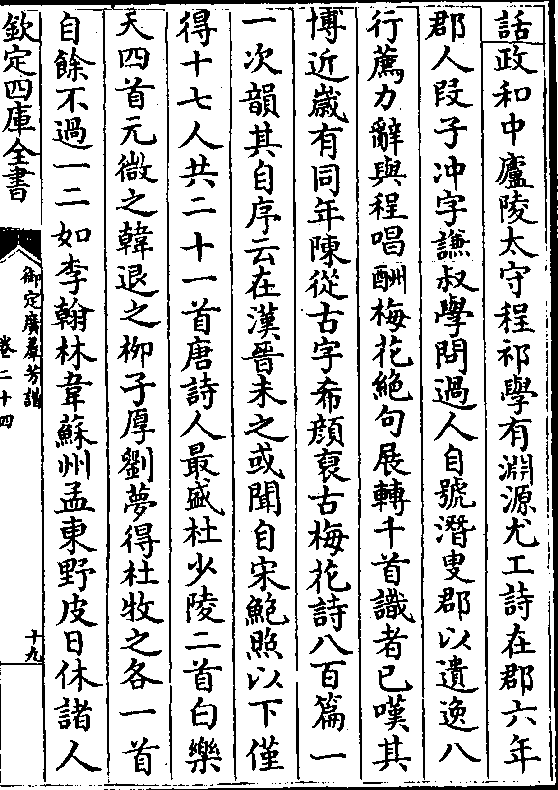 話政和中廬陵太守程祁學有淵源尤工詩在郡六年
郡人段子冲字謙叔學問過人自號潛叟郡以遺逸八
行薦力辭與程唱酬梅花絶句展轉千首識者已嘆其
博近嵗有同年陳從古字希顔裒古梅花詩八百篇一
一次韻其自序云在漢晉未之或聞自宋鮑照以下僅
得十七人共二十一首唐詩人最盛杜少陵二首白樂
天四首元微之韓退之栁子厚劉夢得杜牧之各一首
自餘不過一二如李翰林韋蘇州孟東野皮日休諸人
欽定四庫全書
御定廣羣芳譜
卷二十四
十九